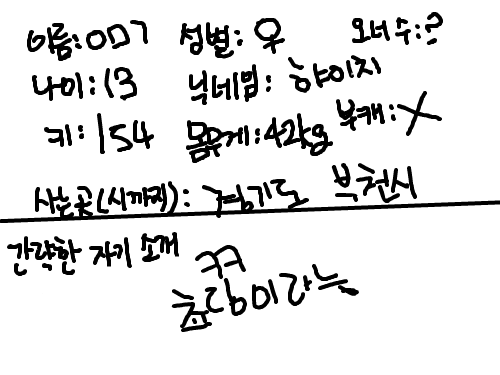 이름:ㅇㅁㄱ 성별:♀ 오너수:?
나이:13 닉네임: 햐이치
키:154 몸무게:42kg 부캐:X
사는곳(시까지): 경기도 부천시
간략한 자기 소개
ㅋㅋ
초딩이라능